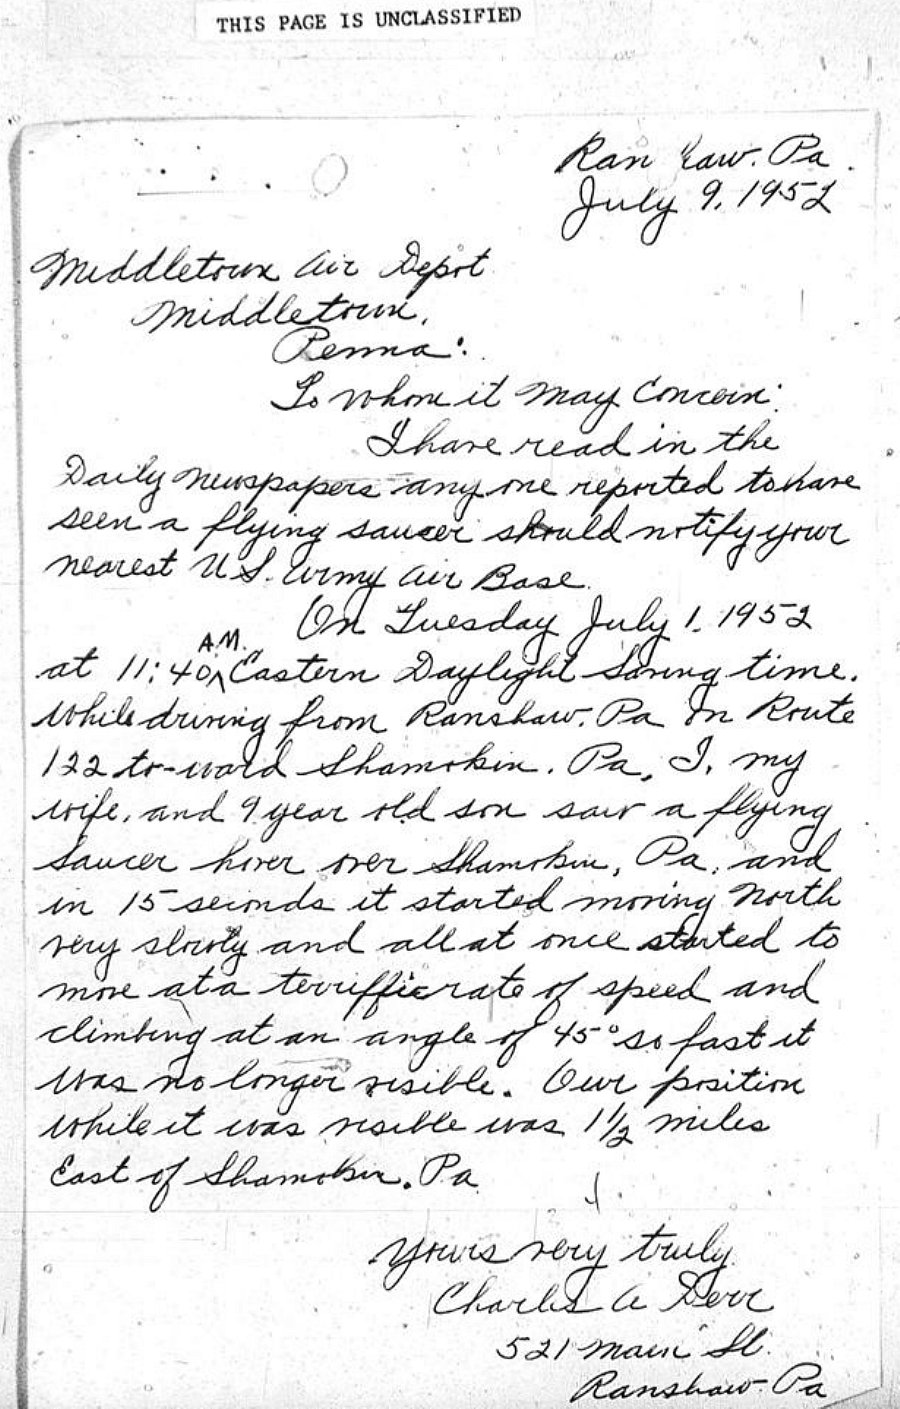 THIS PAGE IS UNCLASSIFIED
Ran haw. Pa.
July 9, 1952
Middletown Air Depot
Middletown,
Penna.
To whom it may Concern:
I have read in the
Daily newspapers any one reported to have
seen a flying saucer should notify your
nearest U.S. Army Air Base.
On Tuesday July 1, 1952
at 11:40 A.M. Eastern Daylight Saving time.
While driving from Ranshaw. Pa on Route
122 to-ward Shamokin. Pa, I, my
wife, and 9 year old son saw a flying
saucer hover over Shamokin, Pa. and
in 15 seconds it started moving North
very slowly and all at once started to
move at a terriffic rate of speed and
climbing at an angle of 45° so fast it
was no longer visible. Our position
while it was visible was 1 1/2 miles
East of Shamokin. Pa
Yours very truly
Charles A Derr
521 Main St.
Ranshaw. Pa